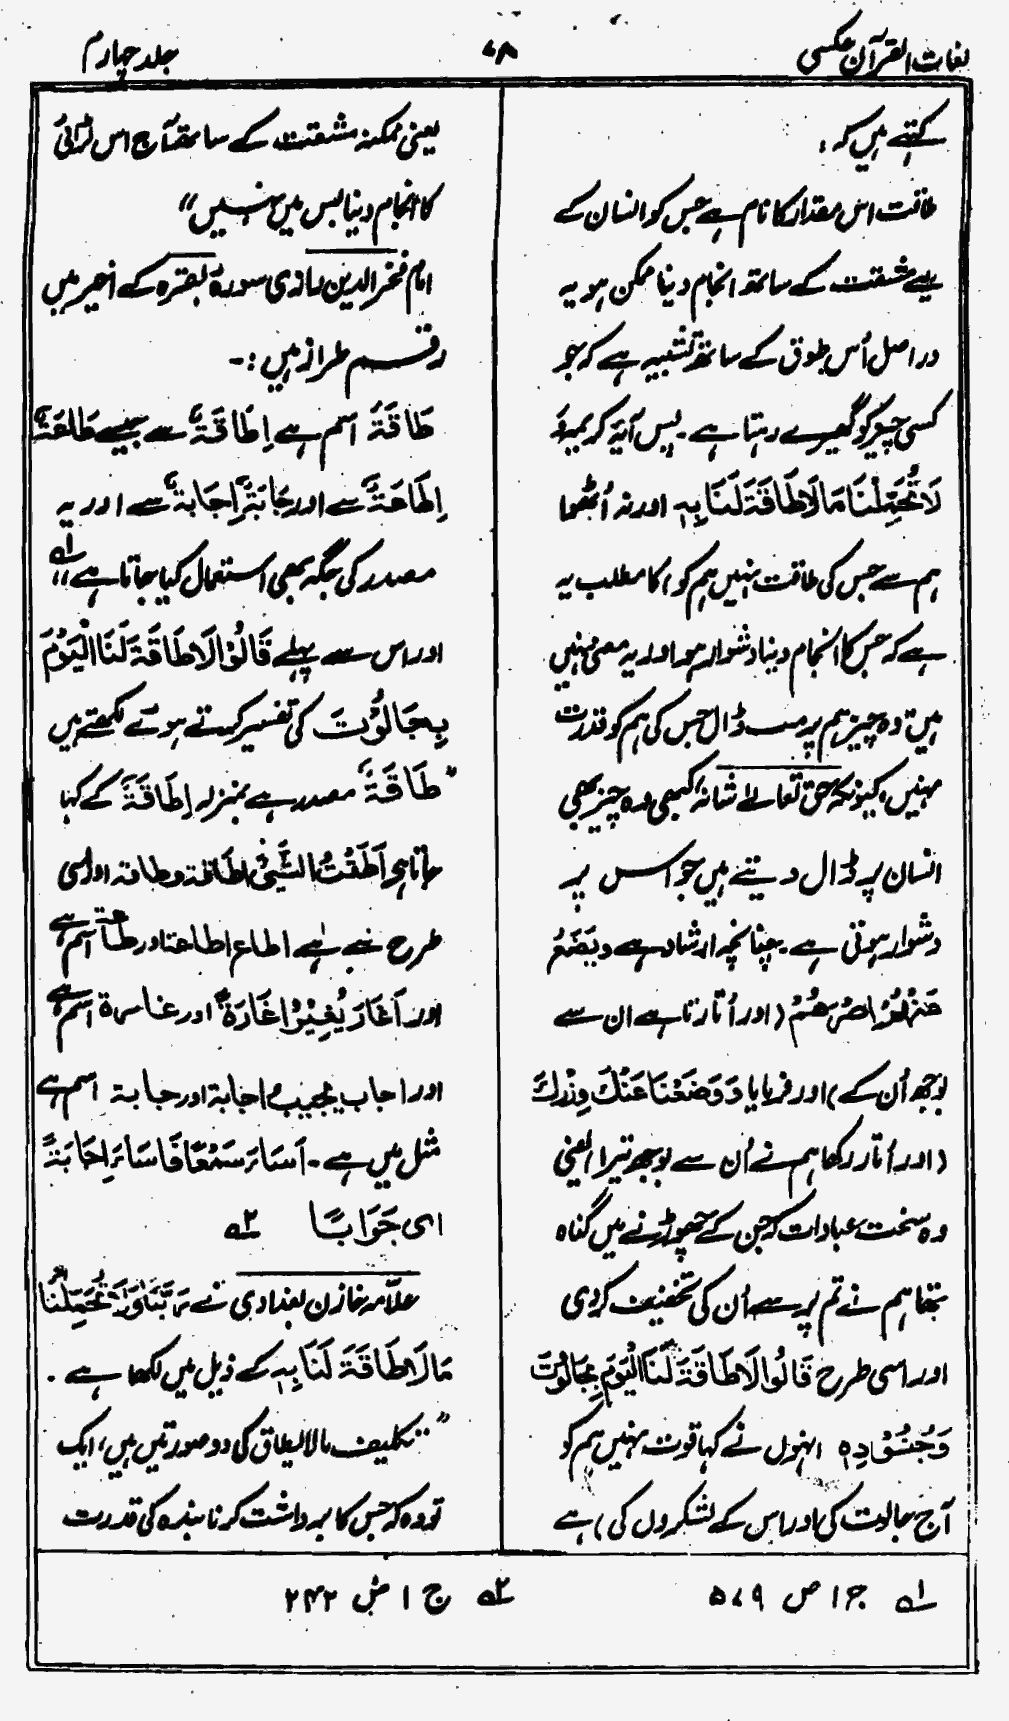 لغات القرآن عکسی
۷۸
جلد چہارم
کہتے ہیں کہ :
طاقت اس مقدار کا نام ہے جس کو انسان کے
لیے مشقت کے ساتھ انجام دینا ممکن ہو یہ
در اصل اُس طوق کے ساتھ تشبیہ ہے کہ جو
کسی چیز کو گھیرے رہتا ہے۔ پس آیہ کریمہ وَ
لَا تُحَمِّلْنَا مَا لَا طَاقَةَ لَنَا بِهٖ اور نہ اُٹھوا
ہم سے جس کی طاقت نہیں ہم کو) کا مطلب یہ
ہے کہ جس کا انجام دینا دشوار ہو اور یہ معنی نہیں
ہیں تو وہ چیز ہم پر مت ڈال جس کی ہم کو قدرت
نہیں، کیونکہ حق تعالےٰ شانہٗ کبھی وہ چیز بھی
انسان پر ڈال دیتے ہیں جو اس پر
دشوار ہوتی ہے۔ چنانچہ ارشاد ہے وَيَضَعُ
عَنْهُمْ اِصْرَهُمْ (اور اُتارتا ہے ان سے
بوجھ اُن کے) اور فرمایا وَوَضَعْنَا عَنْكَ وِزْرَكَ
(اور اُتار رکھا ہم نے اُن سے بوجھ تیرا) یعنی
وہ سخت عبادات کہ جن کے چھوڑنے میں گناہ
تھا ہم نے تم پر سے اُن کی تخفیف کردی
اور اسی طرح قَالُوْا لَا طَاقَةَ لَنَا الْيَوْمَ بِجَالُوْتَ
وَجُنُوْدِهٖ انہوں نے کہا قوت نہیں ہم کو
آج جالوت کی اور اس کے لشکروں کی) ہے
یعنی ممکنہ مشقت کے ساتھ آج اس لڑائی
کا انجام دینا بس میں نہیں"
امام فخر الدین رازی سورۂ بقرہ کے اخیر میں
رقم طراز ہیں :۔
طَاقَةٌ اسم ہے اِطَاقَةٌ سے جیسے طَاعَةٌ
اِطَاعَةٌ سے اور جَابَةٌ اِجَابَةٌ سے اور یہ
مصدر کی جگہ بھی استعمال کیا جاتا ہے" لہ
اور اس سے پہلے قَالُوْا لَا طَاقَةَ لَنَا الْيَوْمَ
بِجَالُوْتَ کی تفسیر کرتے ہوئے لکھتے ہیں
"طَاقَةٌ مصدر ہے بمنزلہ اِطَاقَةٌ کے کہا
جاتا ہے اَطَقْتُ الشَّیْءَ اطاقة وطاقة اور اسی
طرح ہے اطاع اطاعة اور طاعة اسم ہے
اور اَغَارَ يُغِيْرُ اِغَارَةٌ اور غارة اسم ہے
اور اجاب یجیب اجابة اور جابة اسم ہے
مثل میں ہے۔ اَسَاءَ سَمْعًا فَاسَاءَ اِجَابَةً
ای جَوَابًا ۲ہ
علّامہ خازن بغدادی نے رَبَّنَا وَلَا تُحَمِّلْنَا
مَا لَا طَاقَةَ لَنَا بِهٖ کے ذیل میں لکھا ہے ۔
"تکلیف مالا یطاق کی دو صورتیں ہیں، ایک
تو وہ کہ جس کا برداشت کرنا بندہ کی قدرت
لہ ج ۱ ص ۵۷۹
۲ہ ج ۱ ص ۲۴۲